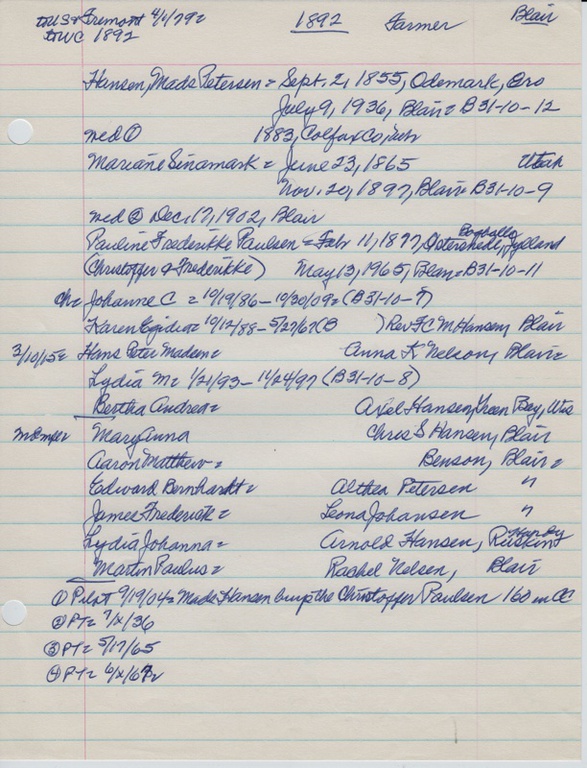 Fremont 4/4/79 1892 Farmer Blair
WC 1892
Hansen, Mads Petersen = Sept. 2, 1855, Odemark,
July 9, 1936, Blair = B31-10-12
med ① 1883, Colfax Co,
Mariane Sinamark = June 23, 1865 Utah
Nov. 20, 1897, Blair = B31-10-9
med ② Dec. 17, 1902, Blair
Pauline Frederikke Paulsen = 11,
(Christoffer & Frederikke) May 13, 1965, Blair = B31-10-11
ch = Johanne C = 10/19/86 - 10/30/09 = (B31-10-7)
Karen = 10/12/88 - 5/27/67 (B ) Rev FCM Hansen, Blair
3/10/15 = Hans Peter Madsen = Anna K Nelson, Blair =
Lydia M = 1/21/93 - 11/24/97 (B31-10-8)
Bertha Andrea = Axel Hansen, Green Bay, Wis
Mary Anna Chris S Hansen, Blair
Aaron Matthew = Benson, Blair =
Edward Bernhardt = Althea Petersen "
James Frederick = Leona Johansen "
Lydia Johanna = Arnold Hansen, Ruskin
Martin Paulus = Rachel Nelsen, Blair
① Pilot 9/19/04 = Mads Hansen buys the Christoffer Paulsen 160 in
② PT = 7/x/36
③ PT = 5/17/65
④ PT = 6/x/67